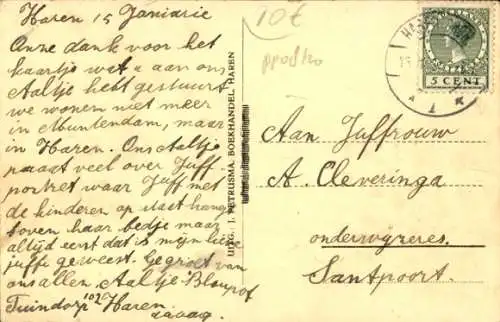 Haren 15 Janiarie
Onze dank voor het
kaartje wat u aan ons
Aaltje hebt gestuurt
we wonen niet meer
in Muntendam, maar
in Haren. Ons Aaltje
praat veel over Juff.
portret waar Juff met
de kinderen op staat hangt
boven haar bedje maar
altijd eerst dat is mijn lieve
juffe geweest. Gegroet van
ons allen Aaltje
Tuindorp 102 Haren
UITG. J. PETRUSMA, BOEKHANDEL, HAREN
10€
5 CENT
Aan Juffrouw
A. Cleveringa
onderwijzeres.
Santpoort.